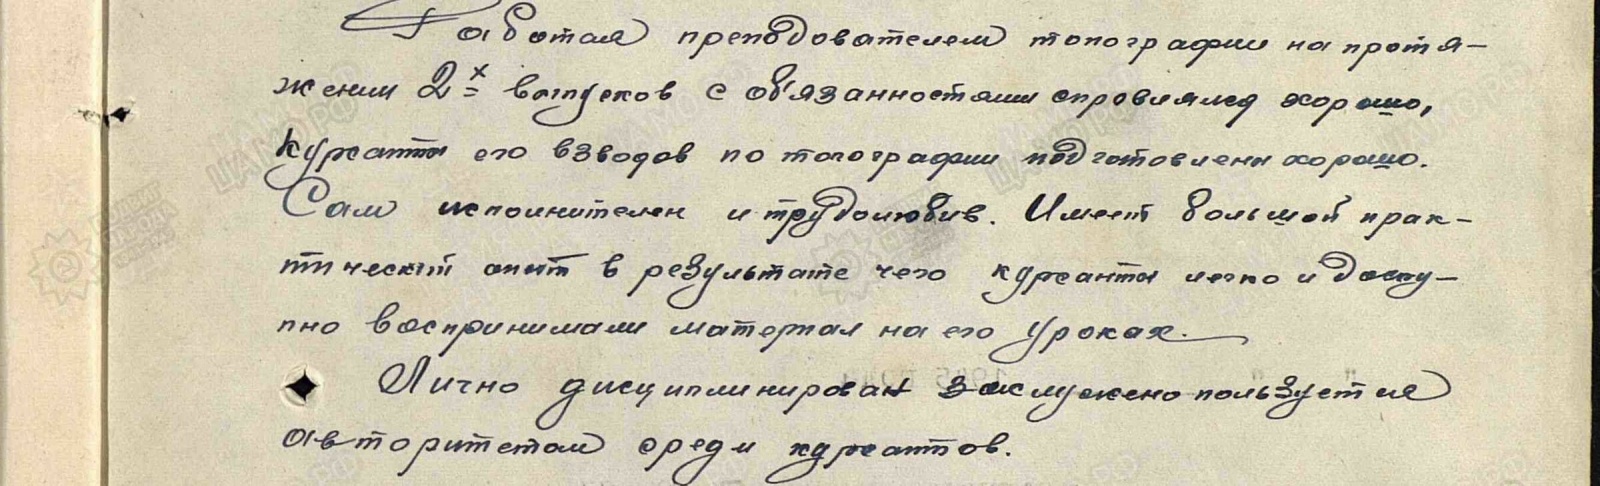 Работая преподователем топографии на протя-
жении 2х выпусков с об'язанностями справлялся хорошо,
курсанты его взводов по топографии подготовлены хорошо.
Сам исполнителен и трудолюбив. Имеет большой прак-
тический опыт в результате чего курсанты легко и досту-
пно воспринимали материал на его уроках.
Лично дисциплинирован заслужено пользуется
авторитетом среди курсантов.